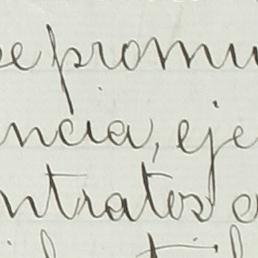 se promu
ncia, eje
ntratos o